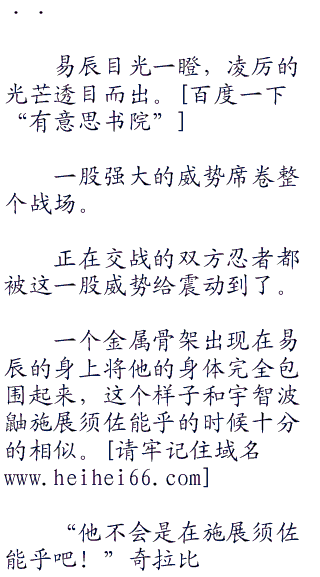 . .
易辰目光一瞪，凌厉的
光芒透目而出。[百度一下
“有意思书院”]
一股强大的威势席卷整
个战场。
正在交战的双方忍者都
被这一股威势给震动到了。
一个金属骨架出现在易
辰的身上将他的身体完全包
围起来，这个样子和宇智波
鼬施展须佐能乎的时候十分
的相似。[请牢记住域名
www.heihei66.com]
“他不会是在施展须佐
能乎吧！”奇拉比